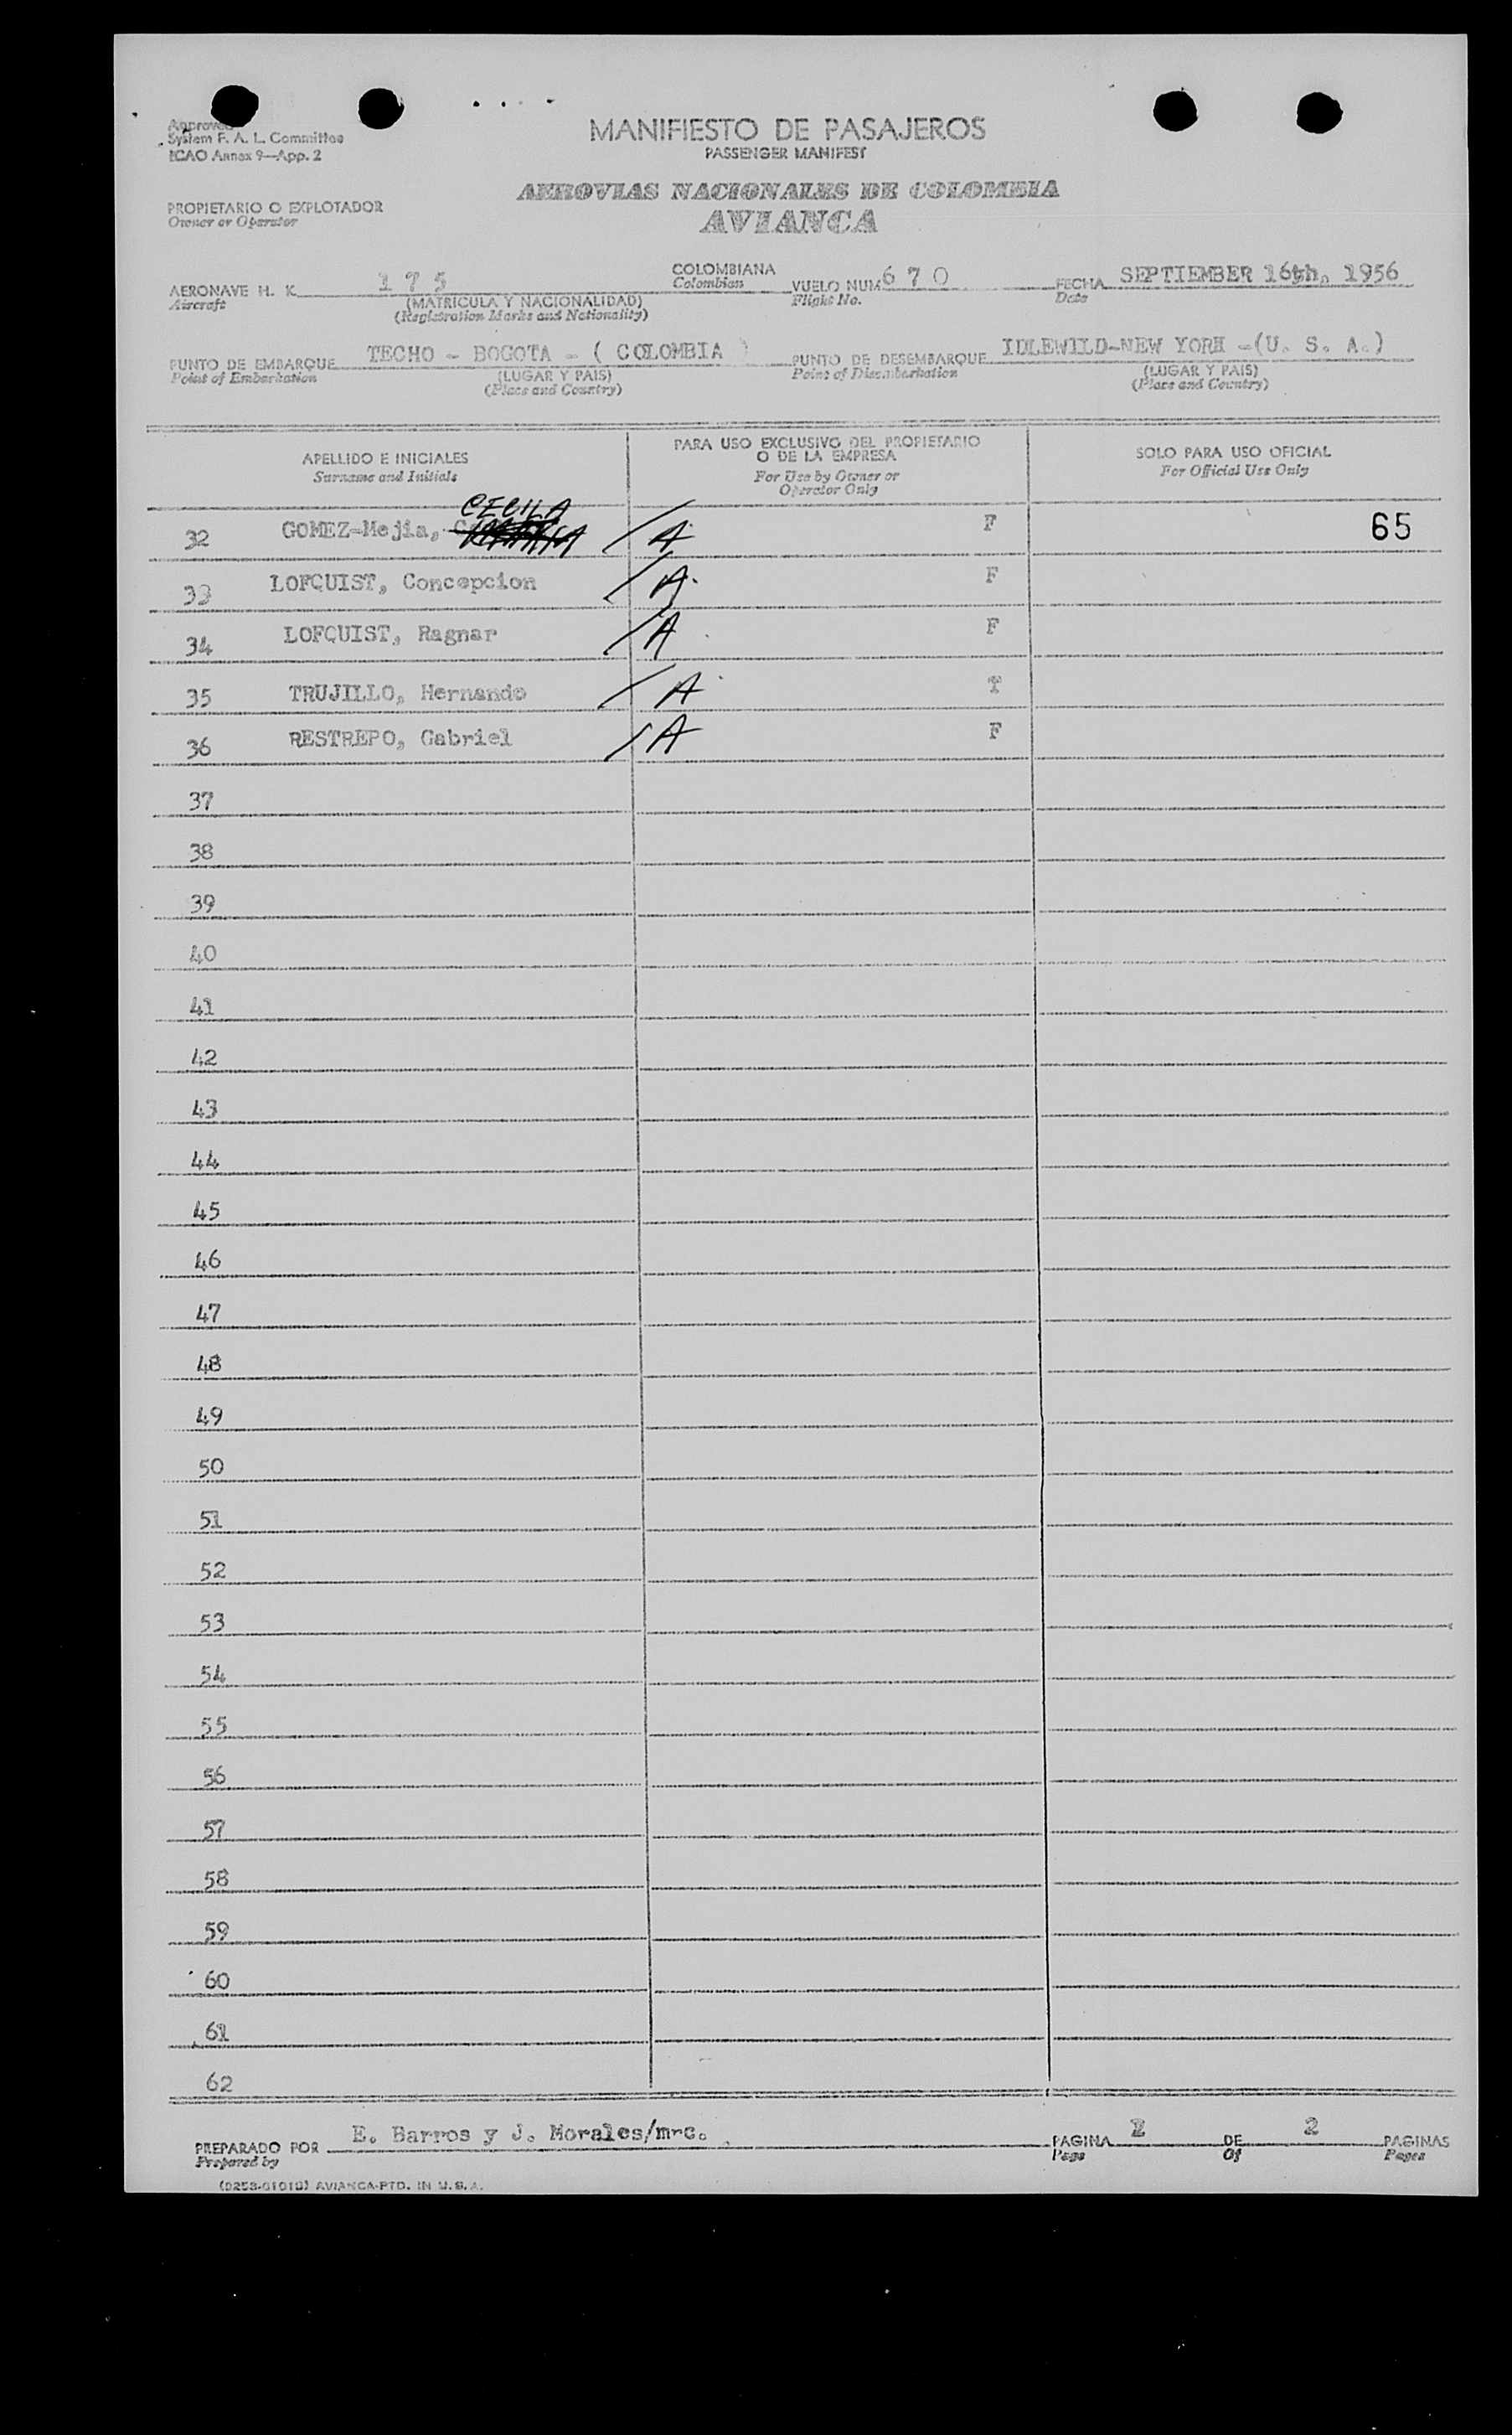 Approved
System F. A. L. Committee
ICAO Annex 9—App. 2
MANIFIESTO DE PASAJEROS
PASSENGER MANIFEST
AEROVIAS NACIONALES DE COLOMBIA
AVIANCA
PROPIETARIO O EXPLOTADOR
Owner or Operator
AERONAVE H. K. 175 COLOMBIANA VUELO NUM 670 FECHA SEPTIEMBER 16th, 1956
Aircraft (MATRICULA Y NACIONALIDAD) Colombian Flight No. Date
(Registration Marks and Nationality)
PUNTO DE EMBARQUE TECHO - BOGOTA - ( COLOMBIA ) PUNTO DE DESEMBARQUE IDLEWILD-NEW YORK -(U. S. A.)
Point of Embarkation (LUGAR Y PAIS) Point of Disembarkation (LUGAR Y PAIS)
(Place and Country) (Place and Country)
APELLIDO E INICIALES PARA USO EXCLUSIVO DEL PROPIETARIO O DE LA EMPRESA SOLO PARA USO OFICIAL
Surname and Initials For Use by Owner or Operator Only For Official Use Only
CECILA
32 GOMEZ-Mejia, / A F 65
33 LOFQUIST, Concepcion / A F
34 LOFQUIST, Ragnar / A F
35 TRUJILLO, Hernando / A T
36 RESTREPO, Gabriel / A F
37
38
39
40
41
42
43
44
45
46
47
48
49
50
51
52
53
54
55
56
57
58
59
60
61
62
PREPARADO POR E. Barros y J. Morales/mrc. PAGINA 2 DE 2 PAGINAS
Prepared by Page Of Pages
AVIANCA-PTD. IN U.S.A.